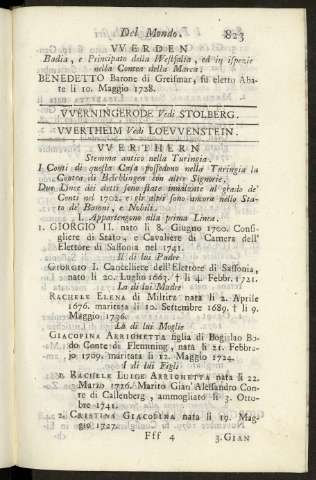 Del Mondo. 823
VVERDEN
Badia, e Principato della Westfalia, ed in ispezie
nella Contea della Marca:
BENEDETTO Barone di Greismar, fu eletto Aba-
te li 10. Maggio 1728.
VVERNINGERODE Vedi STOLBERG.
VVERTHEIM Vedi LOEVVENSTEIN.
VVERTHERN
Stemma antico nella Turingia.
I Conti di questa Casa possedono nella Turingia la
Contea di Beichlingen con altre Signorie.
Due Linee dei detti sono state innalzate al grado de'
Conti nel 1702. e gli altri sono ancora nello Sta-
to di Baroni, e Nobili.
I. Appartengono alla prima Linea.
1. GIORGIO II. nato li 8. Giugno 1700. Consi-
gliere di Stato, e Cavaliere di Camera dell'
Elettore di Sassonia nel 1741.
Il di lui Padre
GIORGIO I. Cancelliere dell'Elettore di Sassonia,
nato li 20. Luglio 1663. † li 4. Febbr. 1721.
La di lui Madre
RACHELE ELENA di Miltitz nata li 2. Aprile
1676. maritata li 10. Settembre 1689. † li 9.
Maggio 1736.
La di lui Moglie
GIACOPINA ARRIGHETTA figlia di Bogislao Bo-
do Conte di Flemming, nata li 21. Febbra-
jo 1709. maritata li 12. Maggio 1724.
I di lui Figli
1. RACHELE LUIGE ARRIGHETTA nata li 22.
Marzo 1726. Marito Gian' Alessandro Con-
te di Callenberg, ammogliato li 3. Otto-
bre 1741.
2. CRISTINA GIACOPINA nata li 19. Mag-
gio 1727.
Fff 4 3. GIAN